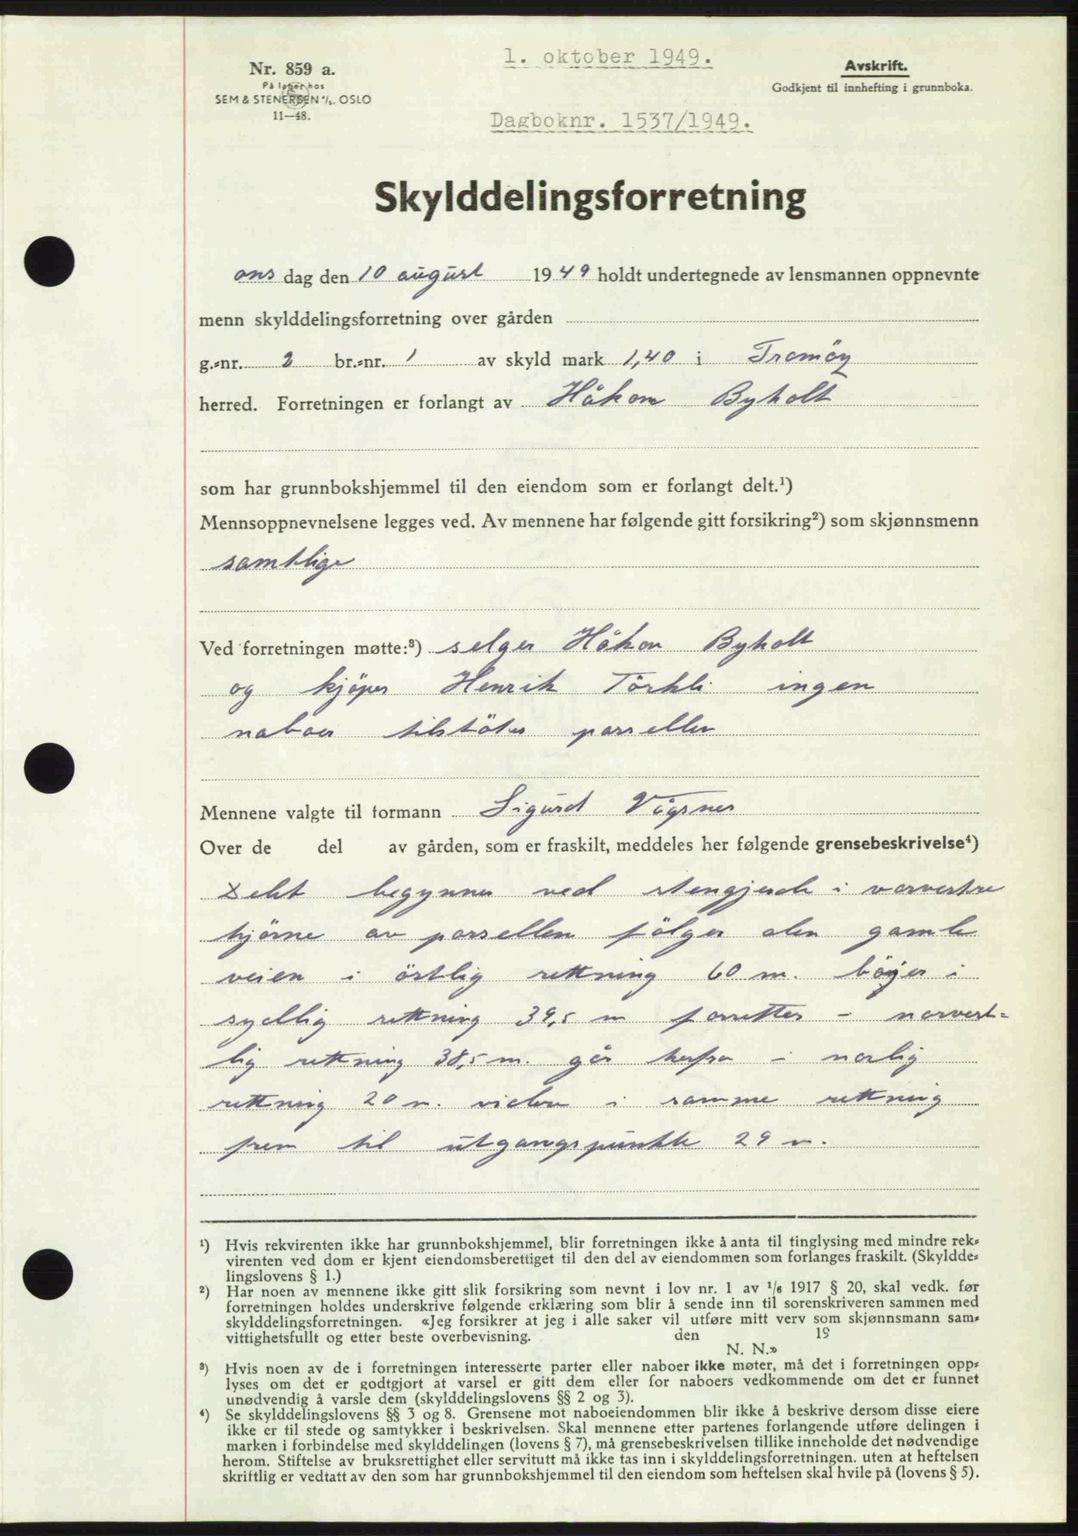 Nr. 859 a.
På lager hos
SEM & STENERSEN A/S. OSLO
11—48.
1. oktober 1949.
Dagboknr. 1537/1949.
Avskrift.
Godkjent til innhefting i grunnboka.
Skylddelingsforretning
ons dag den 10 august 1949 holdt undertegnede av lensmannen oppnevnte
menn skylddelingsforretning over gården
g.-nr. 2 br.-nr. 1 av skyld mark 1,40 i Tromöy
herred. Forretningen er forlangt av Håkon Byholt
som har grunnbokshjemmel til den eiendom som er forlangt delt.¹)
Mennsoppnevnelsene legges ved. Av mennene har følgende gitt forsikring²) som skjønnsmenn
samtlige
Ved forretningen møtte:³) selger Håkon Byholt
og kjöper Henrik Törkli ingen
naboer tilstöter parsellen
Mennene valgte til formann Sigurd Vågsnes
Over de del av gården, som er fraskilt, meddeles her følgende grensebeskrivelse⁴)
Delet begynner ved stengjerde i norvestre
hjörne av parsellen fölger den gamle
veien i östlig rettning 60 m. böyer i
sydlig rettning 39,5 m forretter - norvest-
lig rettning 38,5 m. går herfra i norlig
rettning 20 m. videre i samme rettning
frem til utgangspunkte 29 m.
¹) Hvis rekvirenten ikke har grunnbokshjemmel, blir forretningen ikke å anta til tinglysing med mindre rek-
virenten ved dom er kjent eiendomsberettiget til den del av eiendommen som forlanges fraskilt. (Skyldde-
lingslovens § 1.)
²) Har noen av mennene ikke gitt slik forsikring som nevnt i lov nr. 1 av 1/6 1917 § 20, skal vedk. før
forretningen holdes underskrive følgende erklæring som blir å sende inn til sorenskriveren sammen med
skylddelingsforretningen. «Jeg forsikrer at jeg i alle saker vil utføre mitt verv som skjønnsmann sam-
vittighetsfullt og etter beste overbevisning. den 19
N. N.»
³) Hvis noen av de i forretningen interesserte parter eller naboer ikke møter, må det i forretningen opp-
lyses om det er godtgjort at varsel er gitt dem eller for naboers vedkommende om det er funnet
unødvendig å varsle dem (skylddelingslovens §§ 2 og 3).
⁴) Se skylddelingslovens §§ 3 og 8. Grensene mot naboeiendommen blir ikke å beskrive dersom disse eiere
ikke er til stede og samtykker i beskrivelsen. Skal mennene etter partenes forlangende utføre delingen i
marken i forbindelse med skylddelingen (lovens § 7), må grensebeskrivelsen tillike inneholde det nødvendige
herom. Stiftelse av bruksrettighet eller servitutt må ikke tas inn i skylddelingsforretningen. uten at heftelsen
skriftlig er vedtatt av den som har grunnbokshjemmel til den eiendom som heftelsen skal hvile på (lovens § 5).